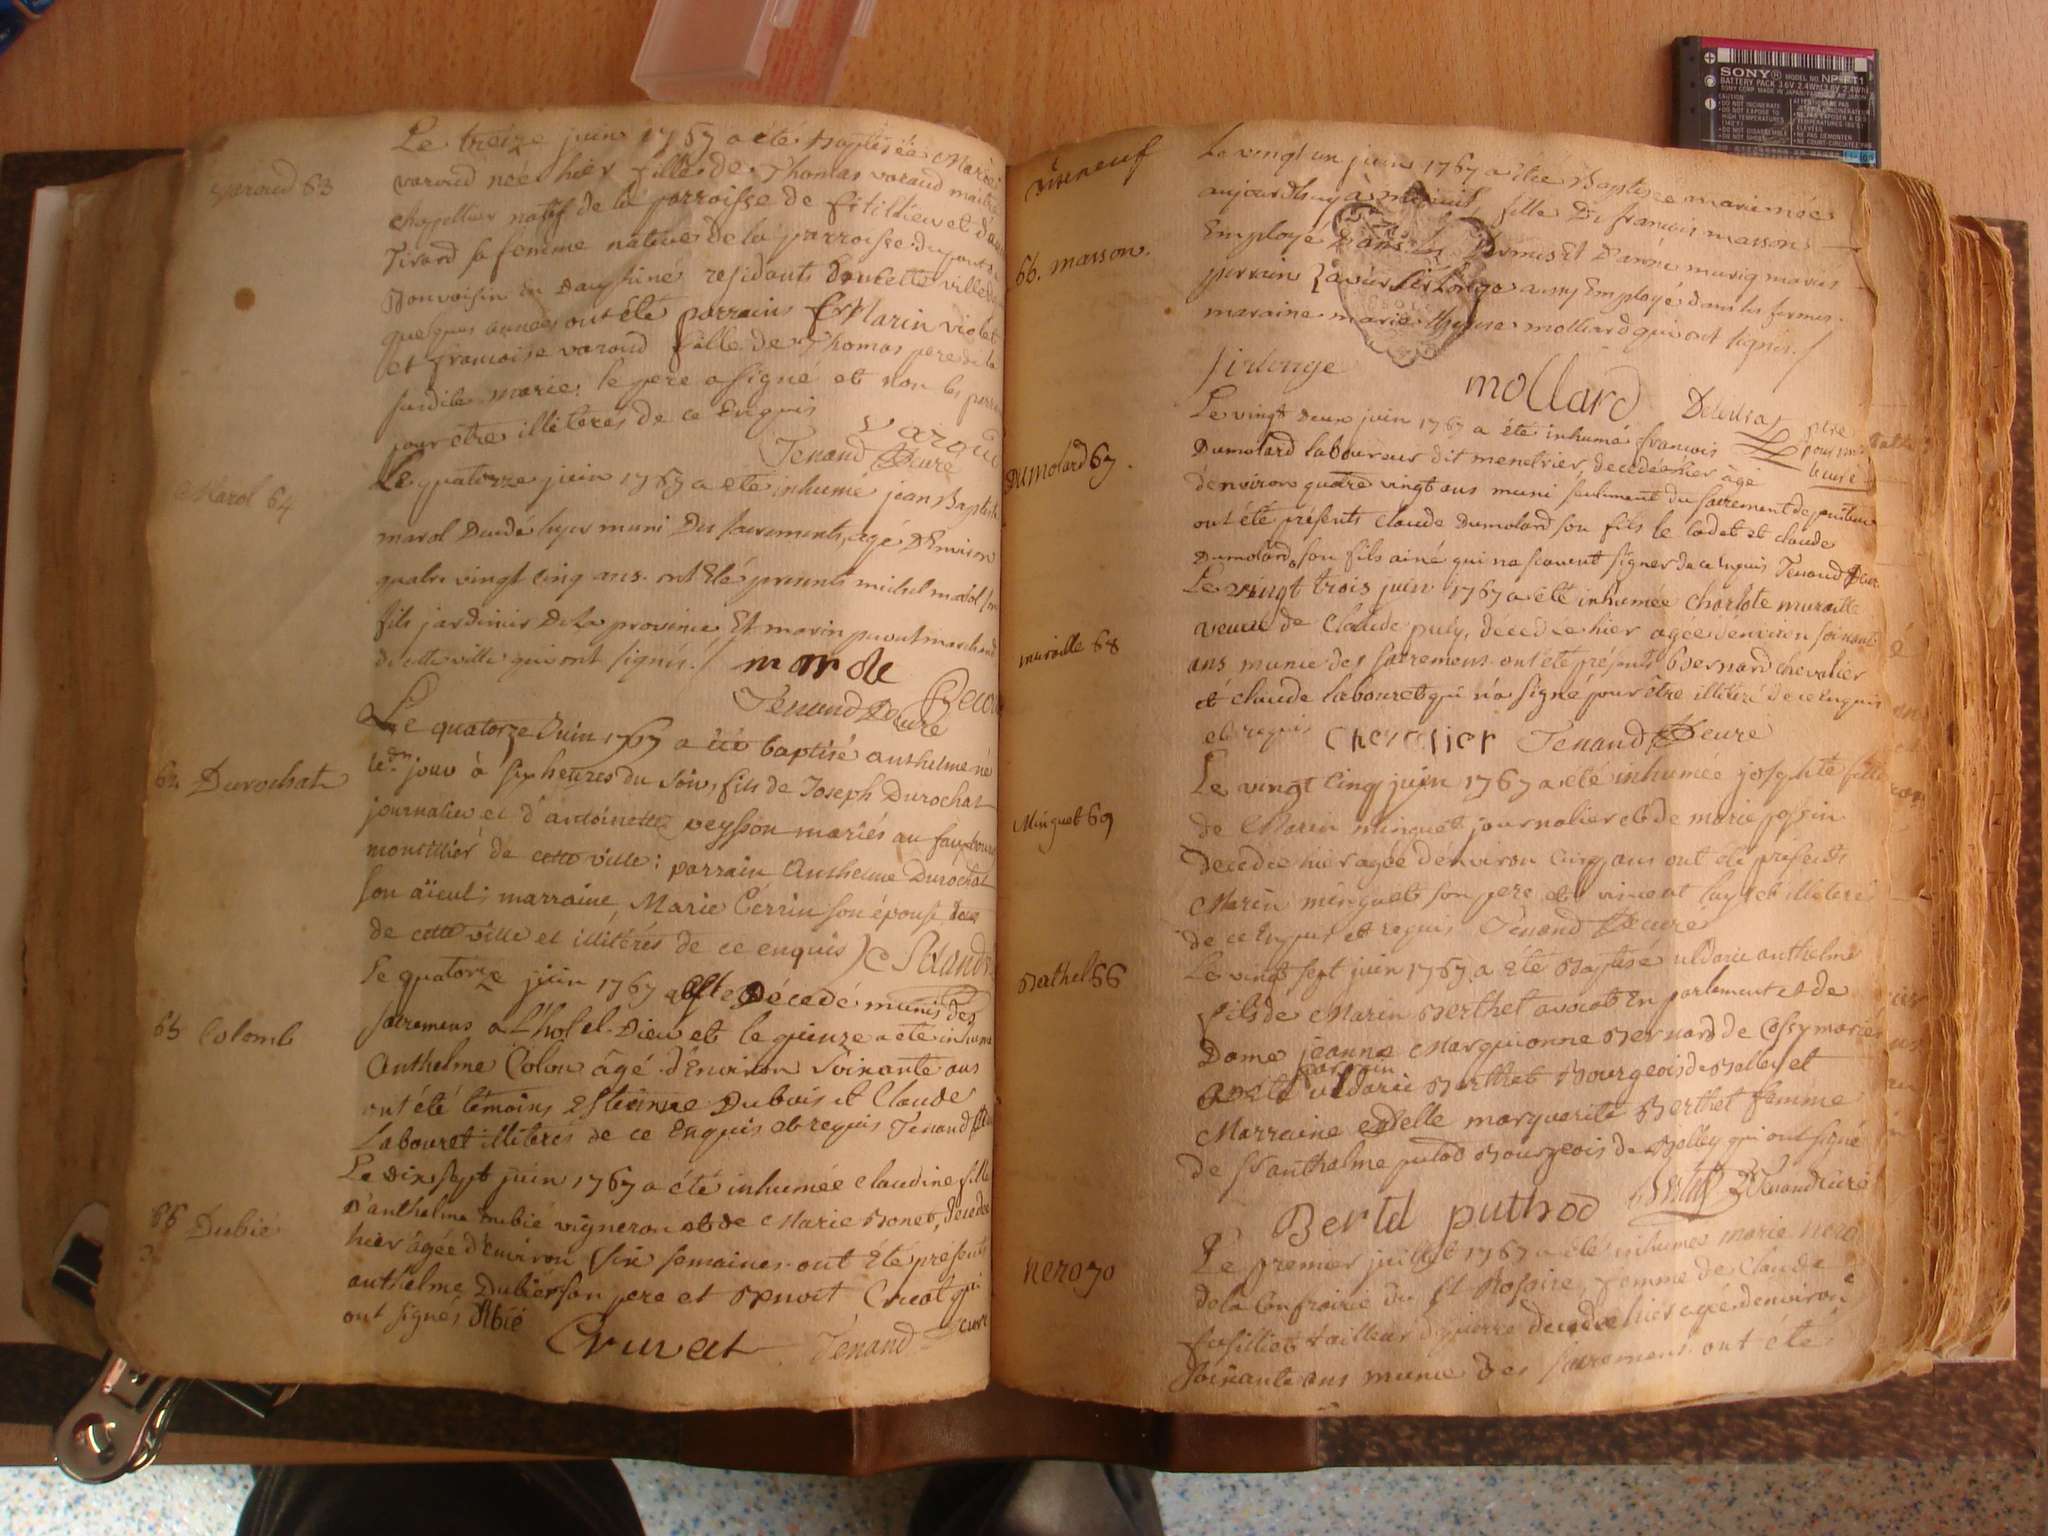 varaud 63
Le treize juin 1767 a été Baptisée Marie
varaud née hier fille de Thomas varaud maitre
chapellier natif de la parroisse de fitillieu et d'
Tirard sa femme native de la parroisse du pont de
Bonvoisin en Dauphiné residents dans cette ville depuis
quelques années ont été parrains Marin violet
et francoise varaud fille de Thomas pere de la
susdite marie, le pere a signé et non les
pour être illiterés de ce Enquis
varaud
Tenand Curé
Marol 64
Le quatorze juin 1767 a eté inhumé jean Baptiste
marol Decedé hyer muni Des sacrements, agé D'Environ
quatre vingt cinq ans. ont Eté presents michel marol son
fils jardinier De La province Et marin marchand
de cette ville qui ont signés./. marole
Tenand Curé
64 Durochat
Le quatorze Juin 1767 a été baptisé anthelme né
le dn jour à six heures du soir, fils de Joseph Durochat
journalier et d'antoinette veysson mariés au fauxbourg
montillier de cette ville; parrain Anthelme Durochat
son aïeul; marraine, Marie Cerrin son épouse, tous
de cette ville et illitérés de ce enquis)
65 Colomb
Le quatorze juin 1767 est Décedé muni des
sacremens a L'hotel-Dieu et le quinze a eté inhumé
Anthelme Colon âgé d'Environ soixante ans
ont été témoins Estienne Dubois et Claude
Labouret illiteres de ce Enquis et requis Tenand
66 Dubié
Le Dix sept juin 1767 a été inhumée claudine fille
D'anthelme Dubié vigneron et de Marie Bonet, Decedée
hier âgée d'environ six semaines. ont Eté présents
anthelme Dubier son pere et Benoit Cruat qui
ont signés Dbié
Cruvat Tenand Curé
dixneuf
66. masson.
Le vingt un juin 1767 a Etée Baptisée mariemée
aujourdhuy à minuit, fille De francois masson
Employé Dans les fermes Et D'anne mariés
perrain Xavier sirlonge aussy Employé dans les fermes.
maraine marie therese molliard qui ont signés./
sirlonge mollard
ptre
pour mr
le curé
Dumolard 67.
Le vingt Deux juin 1767 a été inhumé francois
Dumolard laboureur dit menetrier, decedé hier âgé
d'environ quatre vingt ans muni seulement du sacrement de penitence
ont été présents claude Dumolard son fils le cadet et claude
Dumolard son fils ainé qui ne scavent signer de ce Enquis Tenand Curé
muraille 68
Le vingt trois juin 1767 a été inhumée charlote muraille
veuve de Claude puly, decedée hier agée d'environ soixante
ans munie des sacremens. ont été présents Bernard chevalier
et claude labouret qui n'a signé pour être illiteré de ce Enquis
et requis chevalier Tenand Curé
Minguet 69
Le vingt cinq juin 1767 a eté inhumée josephte fille
de Marin minguet journalier et de marie possin
decedée hier agée d'environ cinq ans ont été présents
Marin minguet son pere et vincent luyset illiteré
de ce Enquis et requis Tenand Curé
Berthet 66
Le vingt sept juin 1767 a été Baptisé uldaric anthelme
fils de Marin Berthet avocat En parlement et de
Dame jeanne Marguionne Bernard de Cossy mariés
parrain
uldaric Berthet Bourgeois de Belley et
Marraine edelle marguerite Berthet femme
de Sr anthelme putod Bourgeois de Belley qui ont signé
Bertel puthod Tenand Curé
nero 70
Le premier juillet 1767 a été inhumée marie nero
de la Confrairie du St Rosaire, femme de Claude
fusilliet tailleur de pierre decedée hier agée d'environ
soixante ans munie Des sacremens. ont été
SONY® MODEL NO. NP-FT1
BATTERY PACK 3.6V 2.4Wh
CAUTION
DO NOT INCINERATE
DO NOT EXPOSE TO
HIGH TEMPERATURES
DO NOT DISASSEMBLE
DO NOT SHORT